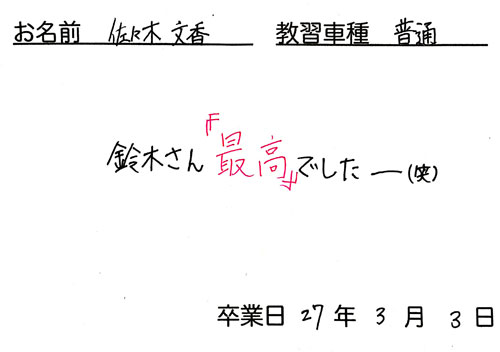 お名前 佐々木 文香 教習車種 普通
鈴木さん『最高』でしたー(笑)
卒業日 27年 3月 3日